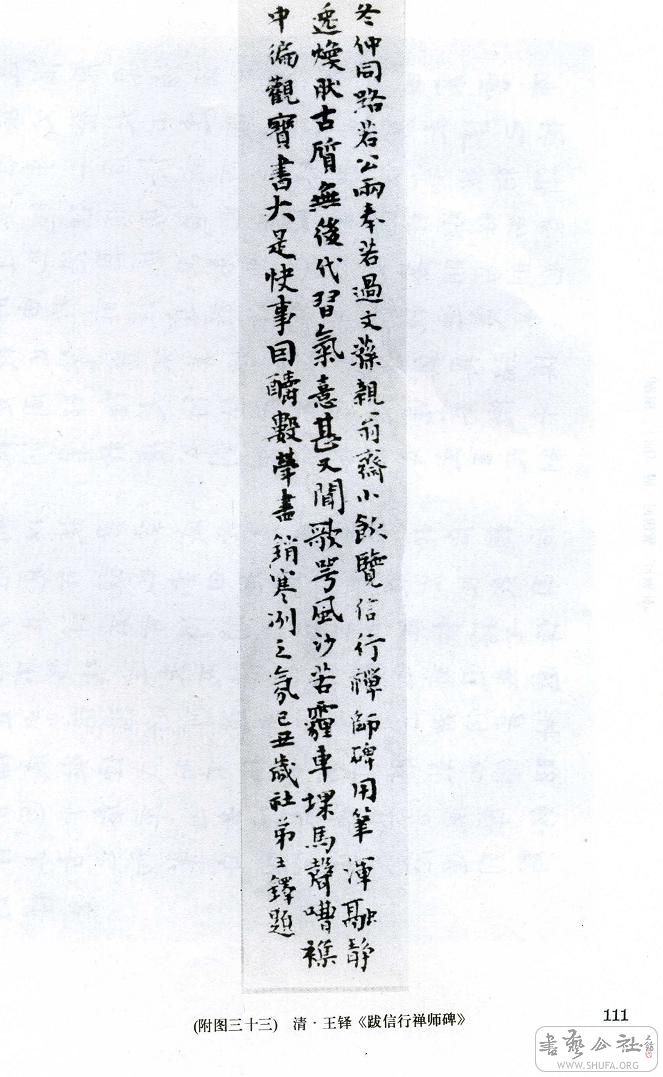 冬仲同路若公雨奉若過文蓀親翁齋小飲覽信行禪師碑用筆渾融靜
逸煥肰古質無後代習氣意甚又聞歌咢風沙若霾車堁馬聲嘈襍
中徧觀寶書大是快事因醻數犖盡銷寒冽之氛己丑歲社弟王鐸題
(附图三十三) 清·王铎《跋信行禅师碑》
111
書藝公社
WWW.SHUFA.ORG